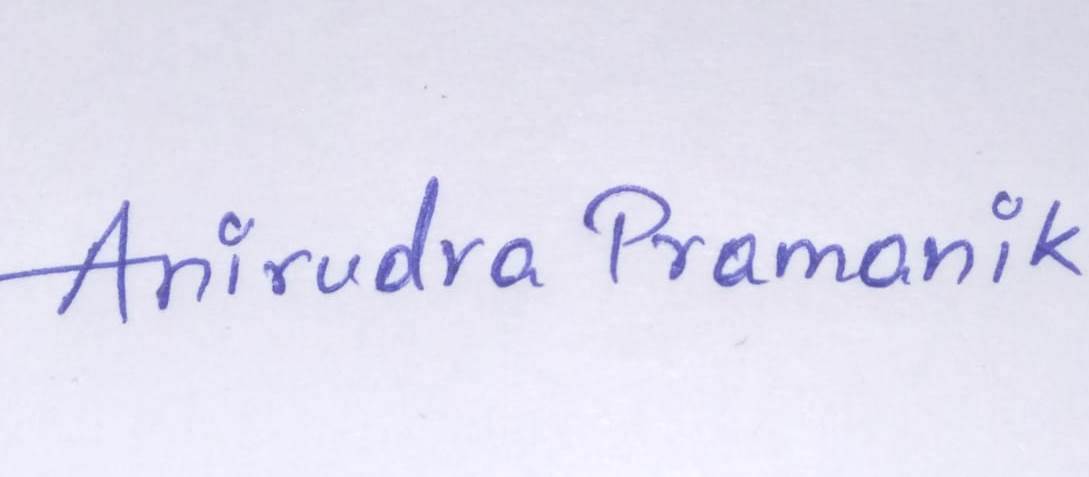 Anirudra Pramanik